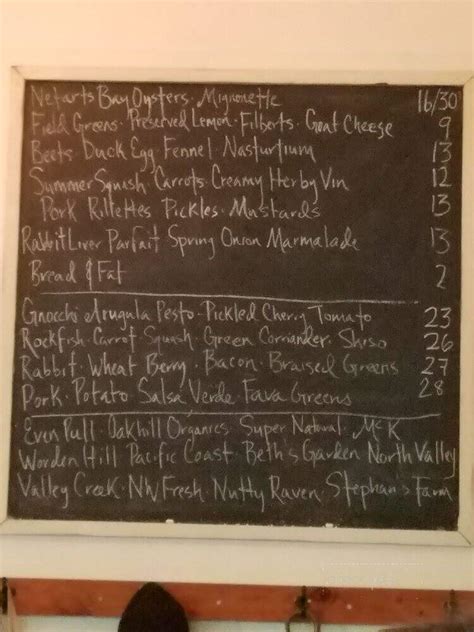 Netarts Bay Oysters. Mignonette 16/30
Field Greens. Preserved Lemon. Filberts. Goat Cheese 9
Beets. Duck Egg. Fennel. Nasturtium 13
Summer Squash. Carrots. Creamy Herby Vin 12
Pork Rillettes Pickles. Mustards 13
Rabbit Liver Parfait Spring Onion Marmalade 13
Bread & Fat 2
Gnocchi Arugula Pesto. Pickled Cherry Tomato 23
Rockfish. Carrot Squash. Green Corriander. Shiso 26
Rabbit. Wheat Berry. Bacon. Braised Greens 27
Pork. Potato Salsa Verde Fava Greens 28
Even Pull. Oakhill Organics. Super Natural. McK
Worden Hill Pacific Coast. Beth's Garden North Valley
Valley Creek. NW Fresh. Nutty Raven. Stephan's Farm